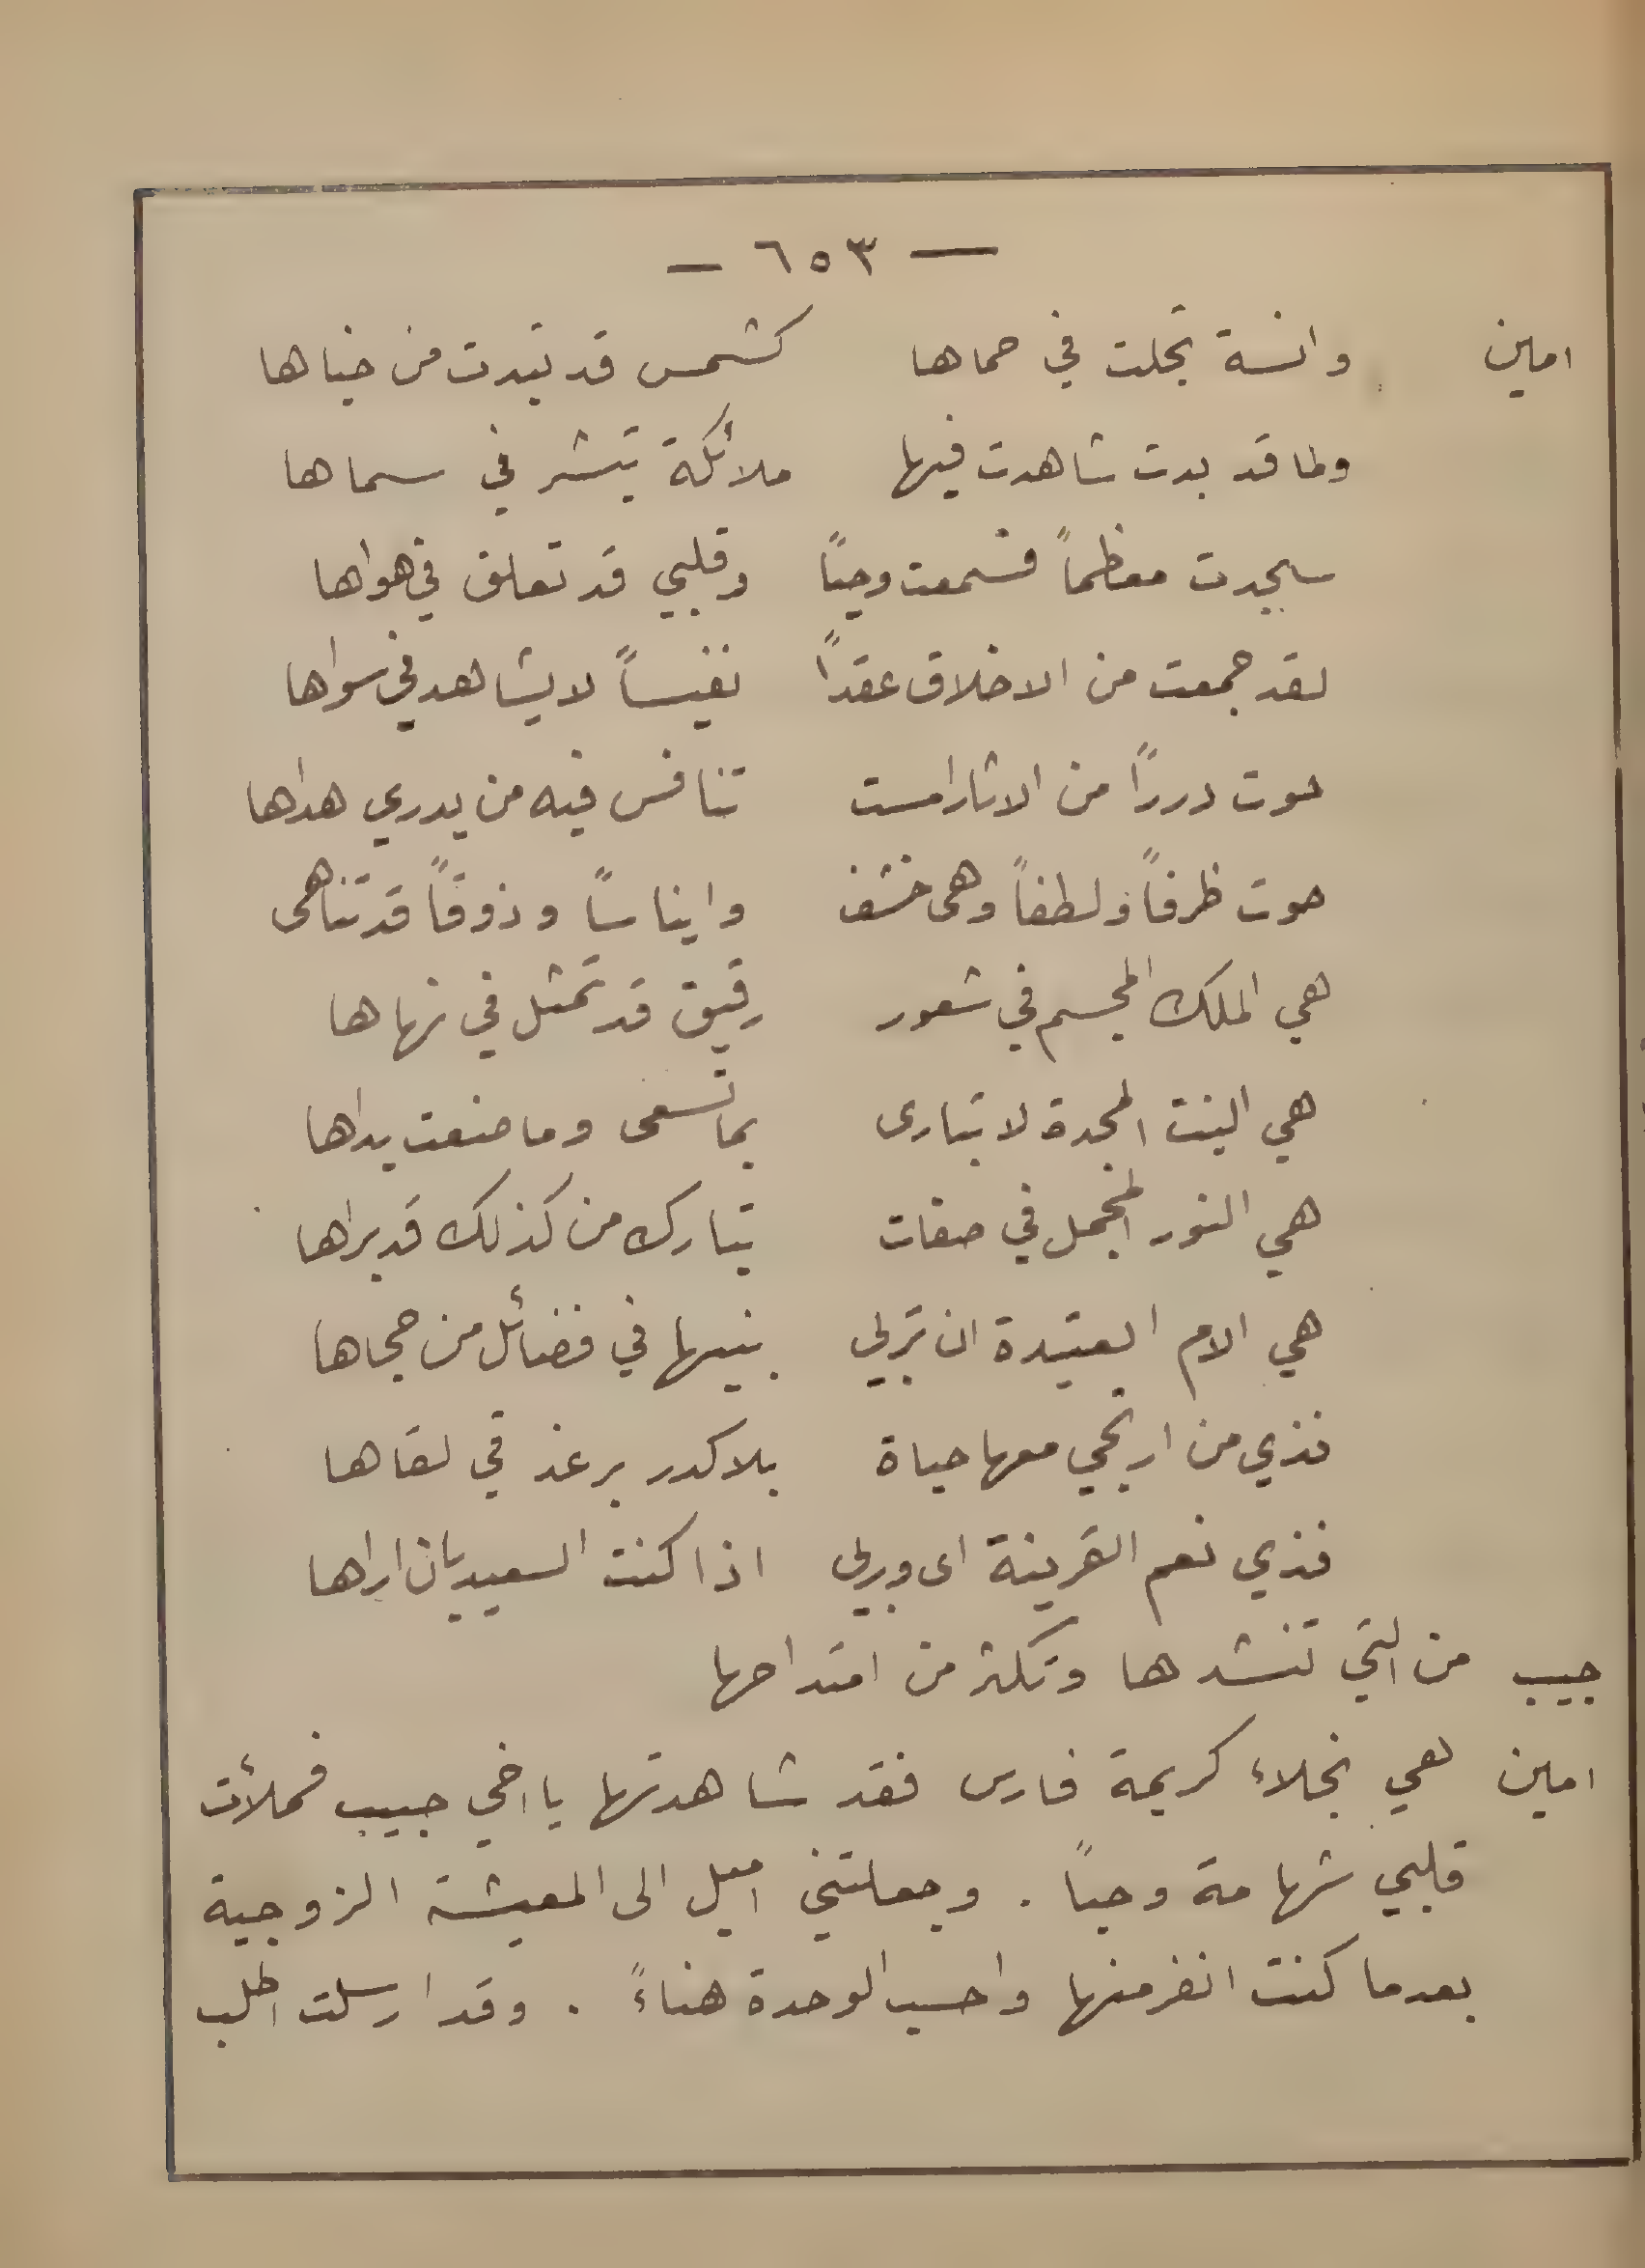 — ٦٥٣ —
امين وانسة تجلت في حماها كشمس قد تبدت من خباها
ولما قد بدت شاهدت فيها ملائكة تبشر في سماها
سجدت معظماً فسمعت وحياً وقلبي قد تعلق في هواها
لقد جمعت من الاخلاق عقداً نفيساً لا يشاهد في سواها
حوت درراً من الاثار امست تنافس فيه من يدري هداها
حوت ظرفاً ولطفاً وهى خشف وايناساً وذوقاً قد تناهى
هي الملك المجسم في شعور رقيق قد تمثل في نهاها
هي البنت المجدة لا تبارى بما تسعى وما صنعت يداها
هي النور المجمل في صفات تبارك من كذلك قد براها
هي الام العتيدة ان تربي بنيها في فضائل من حجاها
فذي من ارتجي معها حياة بلا كدر برغد في لقاها
فذي نعم القرينة اى وربي اذا كنت السعيد بان اراها
حبيب من التي تنشدها وتكثر من امتداحها
امين هي نجلاء كريمة فارس فقد شاهدتها يا اخي حبيب فملأت
قلبي شهامة وحباً . وجعلتني اميل الى المعيشة الزوجية
بعدما كنت انفر منها واحسب الوحدة هناءً . وقد ارسلت اطلب